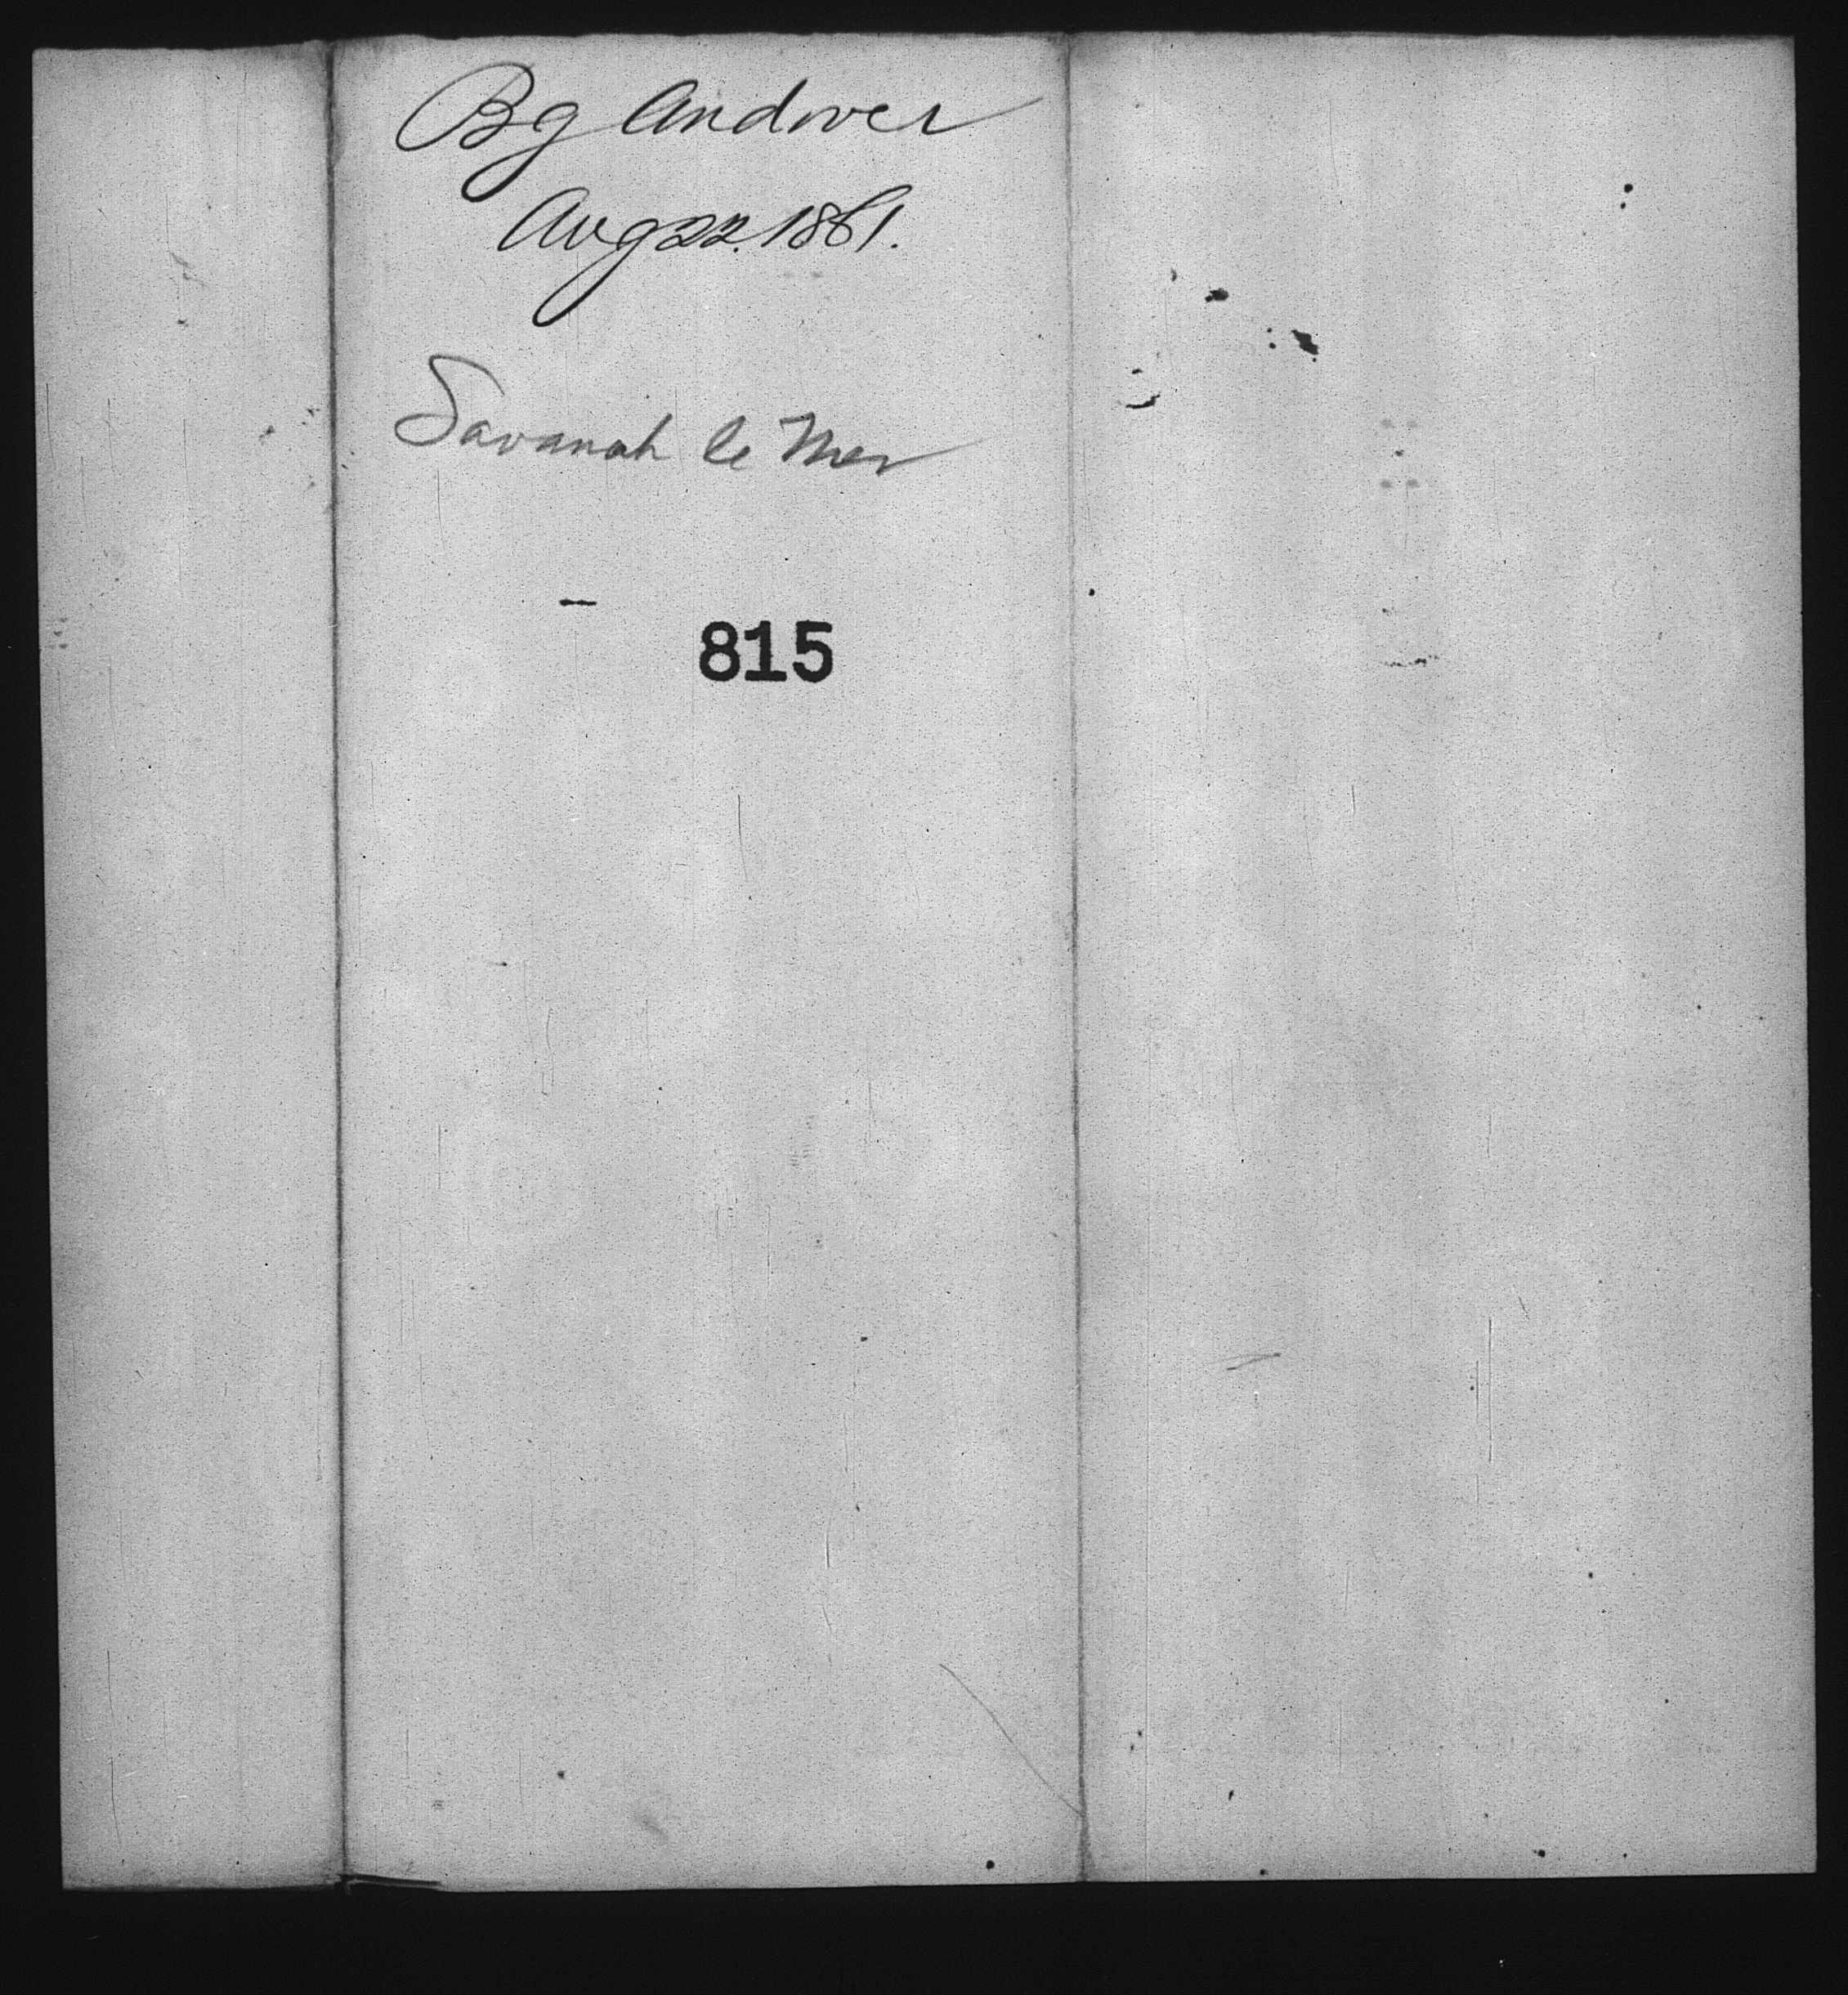 Bg Andover
Aug 22. 1861.
Savanah le Mer
815